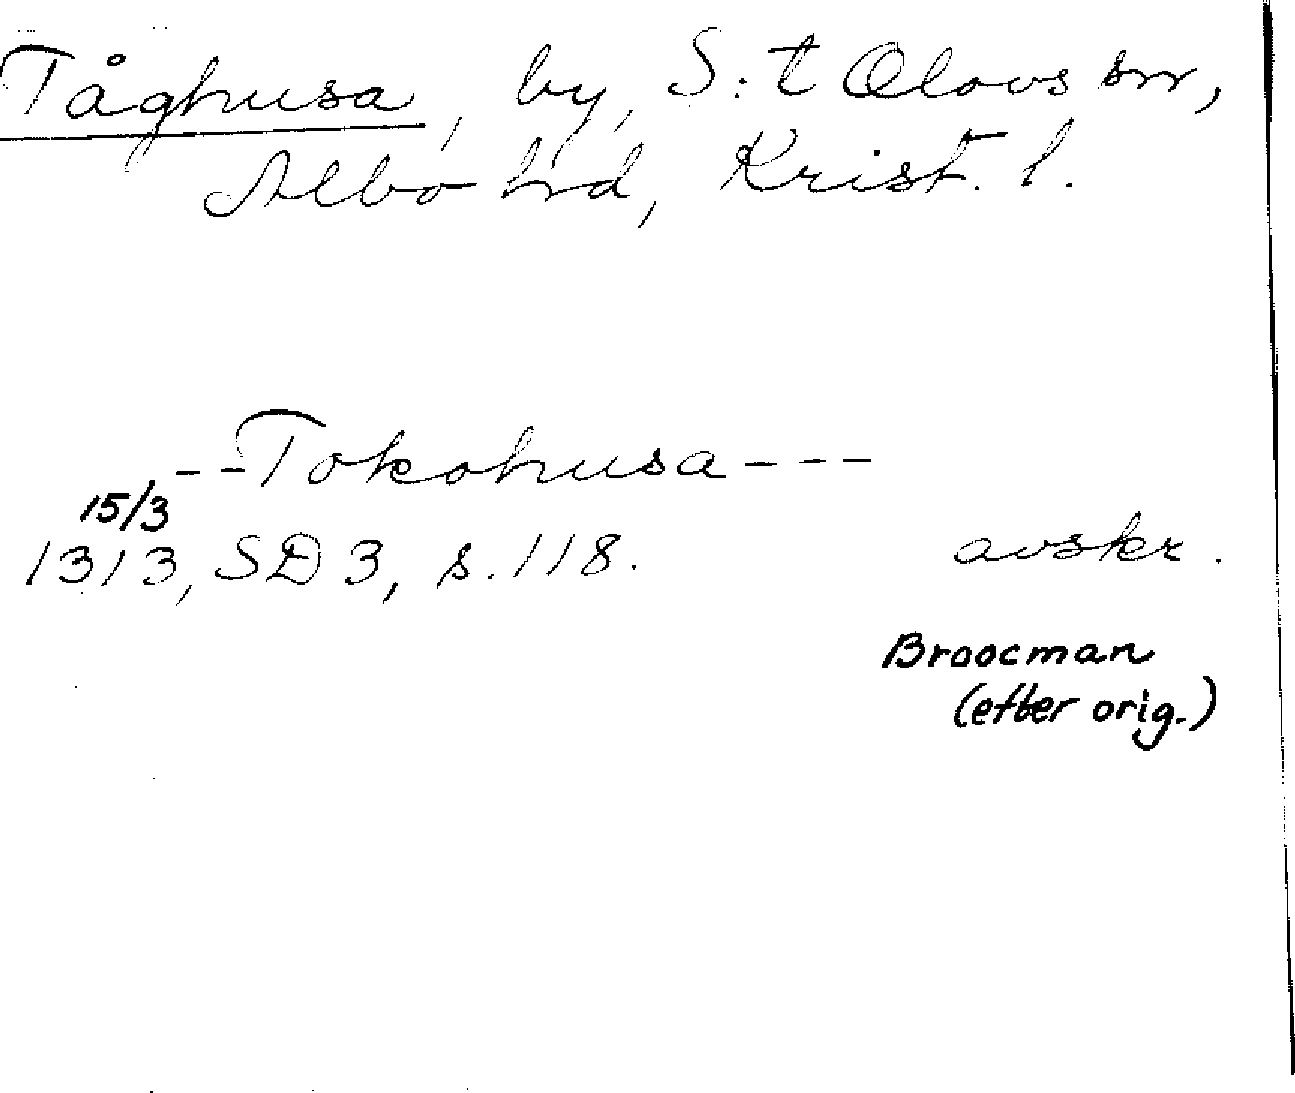 Tåghusa, by, S:t Olovs sn,
Albo hrd, Krist. l.
--Tokohusa---
15/3
1313, SD 3, s. 118. avskr.
Broocman
(efter orig.)